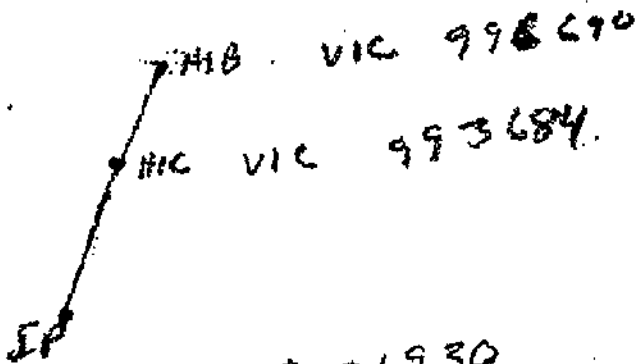 H1B VIC 996690
H1C VIC 993684.
IP